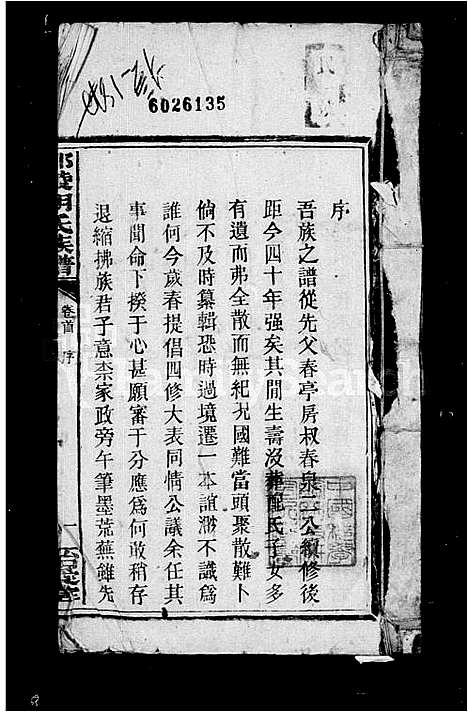 6026135
序
吾族之譜從先父春亭房叔春泉二公續修後
距今四十年强矣其間生壽沒葬配氏子女多
有遺而弗全散而無紀況國難當頭聚散難卜
倘不及時纂輯恐時過境遷一本誼渺不識爲
誰何今歲春提倡四修大表同情公議余任其
事聞命下揆于心甚願審于分應爲何敢稍存
退縮拂族君子意柰家政旁午筆墨荒蕪雖先
胡氏族譜
卷首
序
一